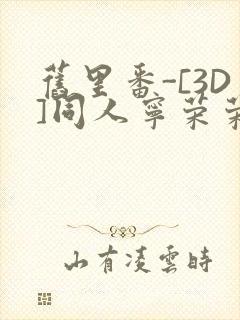 舊里番-[3D
]同人寧荣荣
山有凌雲時